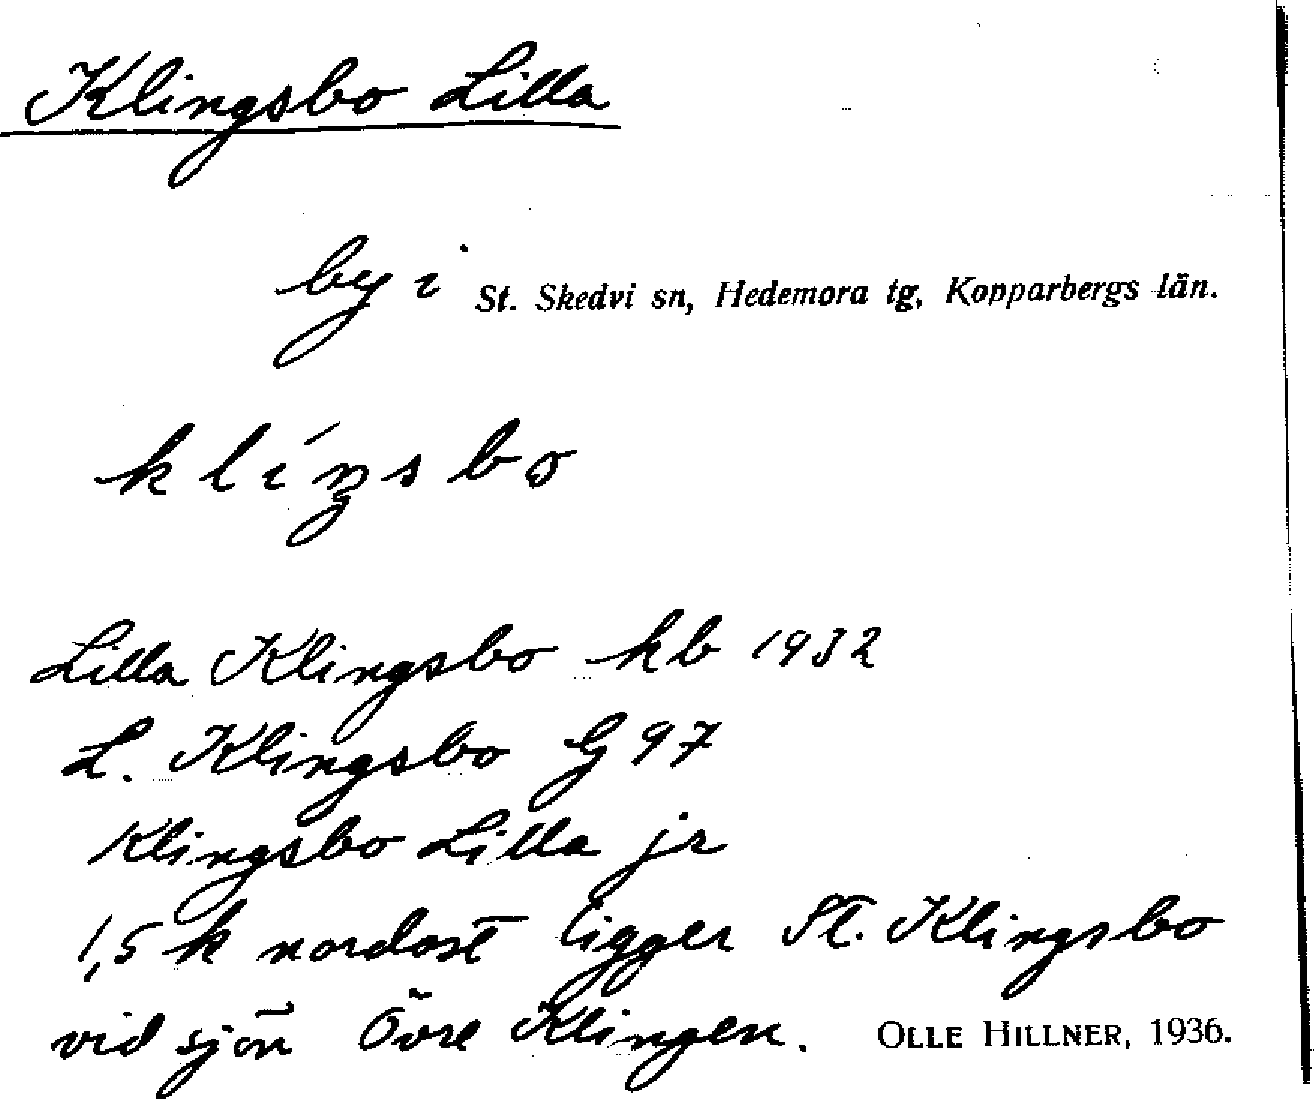 Klingsbo Lilla
by i St. Skedvi sn, Hedemora tg, Kopparbergs län.
klíŋsbo
Lilla Klingsbo kb 1932
L. Klingsbo G 97
Klingsbo Lilla jr
1,5 k nordost ligger St. Klingsbo
vid sjön Övre Klingen. OLLE HILLNER, 1936.